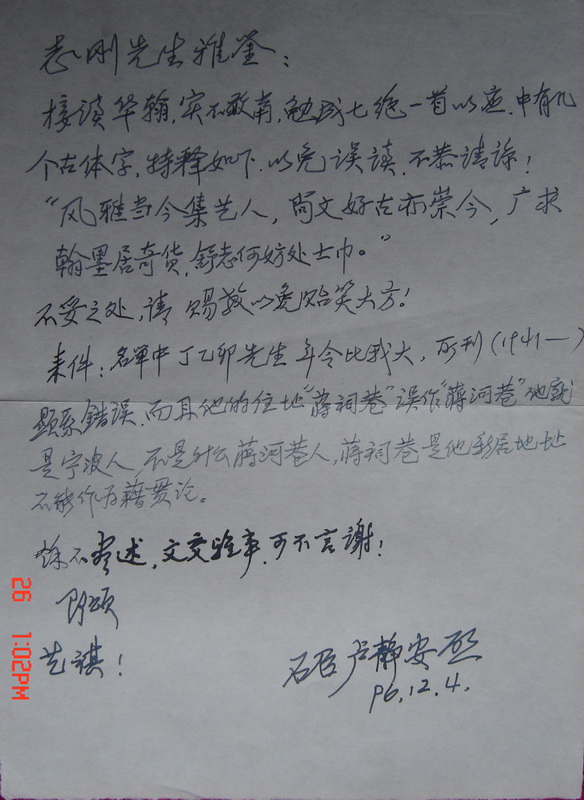 志刚先生雅鉴：
接读华翰，实不敢当，勉成七绝一首以应，中有几
个古体字，特释如下，以免误读，不恭请谅！
“风雅当今集艺人，尚文好古亦崇今，广求
翰墨居奇货，舒志何妨处士巾。”
不妥之处，请 赐教以免贻笑大方！
来件：名单中丁乙卯先生年令比我大，所刊(1941—)
显系错误，而且他的住址“蒋祠巷”误作“蒋河巷”他就
是宁波人，不是什么蒋河巷人，蒋祠巷是他新居地址
不能作为籍贯论。
馀不尽述，文交雅事，可不言謝！
即颂
艺祺！
卢静安启
96.12.4.
26 1:02PM